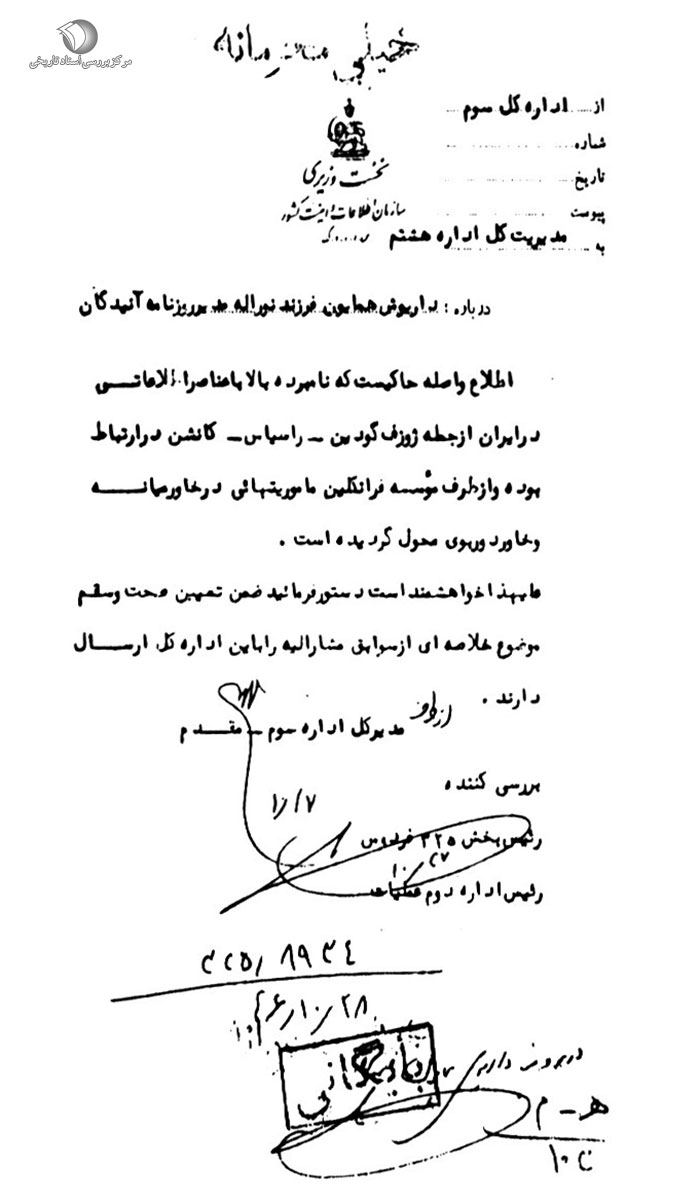 مرکز بررسی اسناد تاریخی
خیلی محرمانه
از اداره کل سوم
شماره
تاریخ
پیوست
نخست وزیری
سازمان اطلاعات و امنیت کشور
س.ا.و.ا.ک
به مدیریت کل اداره هشتم
درباره : داریوش همایون فرزند نوراله مدیر روزنامه آیندگان
اطلاع واصله حاکیست که نامبرده بالا با عناصر اطلاعاتی
در ایران ازجمله ژوزف گودین – راسیاس – کانشن در ارتباط
بوده و از طرف مؤسسه فرانکلین ماموریتهائی در خاورمیانه
و خاور دور بوی محول گردیده است .
علیهذا خواهشمند است دستور فرمائید ضمن تعیین صحت وسقم
موضوع خلاصه ای از سوابق مشارالیه را باین اداره کل ارسال
دارند .
مدیر کل اداره سوم – مقدم
از طرف
بررسی کننده
۱۰/۲۷
رئیس بخش ۳۲۵
۱۰/۲۷
رئیس اداره دوم عملیات
۳۲۵/۸۹۳۴
۴۶/۱۰/۲۸
بایگانی
ه – م